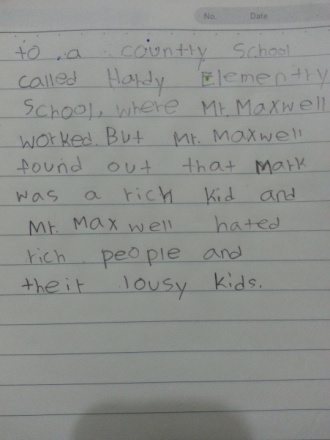 No. Date
to a country School
called Hardy Elementry
School, where Mr. Maxwell
worked. But Mr. Maxwell
found out that Mark
was a rich kid and
Mr. Maxwell hated
rich people and
their lousy kids.